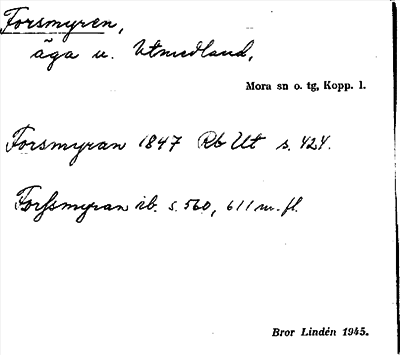 Forsmyren,
äga u. Utmedland,
Mora sn o. tg, Kopp. l.
Forsmyran 1847 Rb Ut s. 424.
Forssmyran ib. s. 560, 611 m. fl.
Bror Lindén 1945.